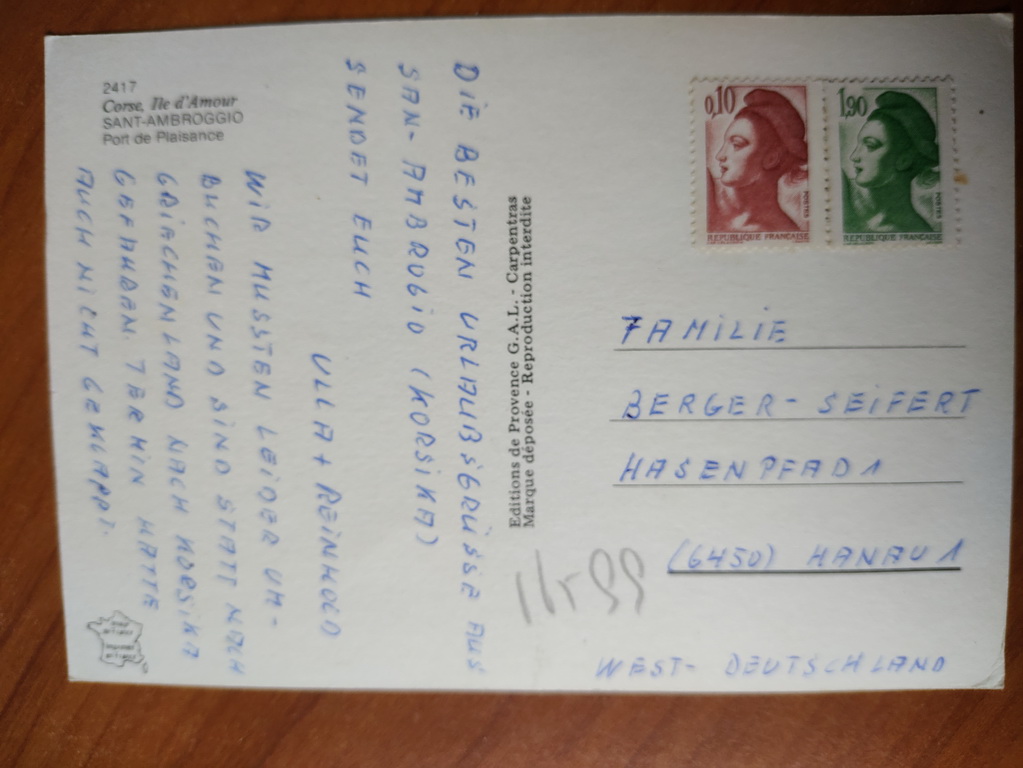 2417
Corse, Ile d'Amour
SANT-AMBROGGIO
Port de Plaisance
DIE BESTEN URLAUBSGRÜSSE AUS
SAN-AMBROGIO (KORSIKA)
SENDET EUCH
ULLA + REINHOLD
WIR MUSSTEN LEIDER UM-
BUCHEN UND SIND STATT NACH
GRIECHENLAND NACH KORSIKA
GEFAHREN. TERMIN HATTE
AUCH NICHT GEKLAPPT.
Editions de Provence G.A.L. - Carpentras
Marque déposée - Reproduction interdite
0,10
POSTES
REPUBLIQUE FRANÇAISE
1,90
POSTES
REPUBLIQUE FRANÇAISE
FAMILIE
BERGER-SEIFERT
HASENPFAD 1
(6450) HANAU 1
WEST-DEUTSCHLAND